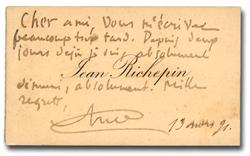 Cher ami, Vous m'écrivez
beaucoup trop tard. Depuis deux
jours déjà je suis, absolument
Jean Richepin
démuni, absolument. Mille
regrets,
13 mars 91.